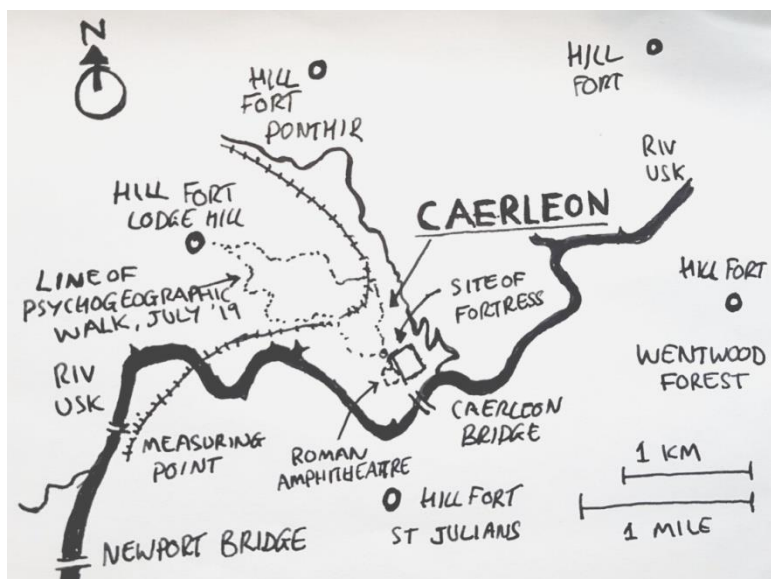 N
HILL
FORT
PONTHIR
HILL
FORT
RIV
USK
HILL FORT
LODGE HILL
CAERLEON
LINE OF
PSYCHOGEOGRAPHIC
WALK, JULY '19
SITE OF
FORTRESS
HILL FORT
WENTWOOD
FOREST
RIV
USK
MEASURING
POINT
ROMAN
AMPHITHEATRE
CAERLEON
BRIDGE
1 KM
HILL FORT
ST JULIANS
1 MILE
NEWPORT BRIDGE